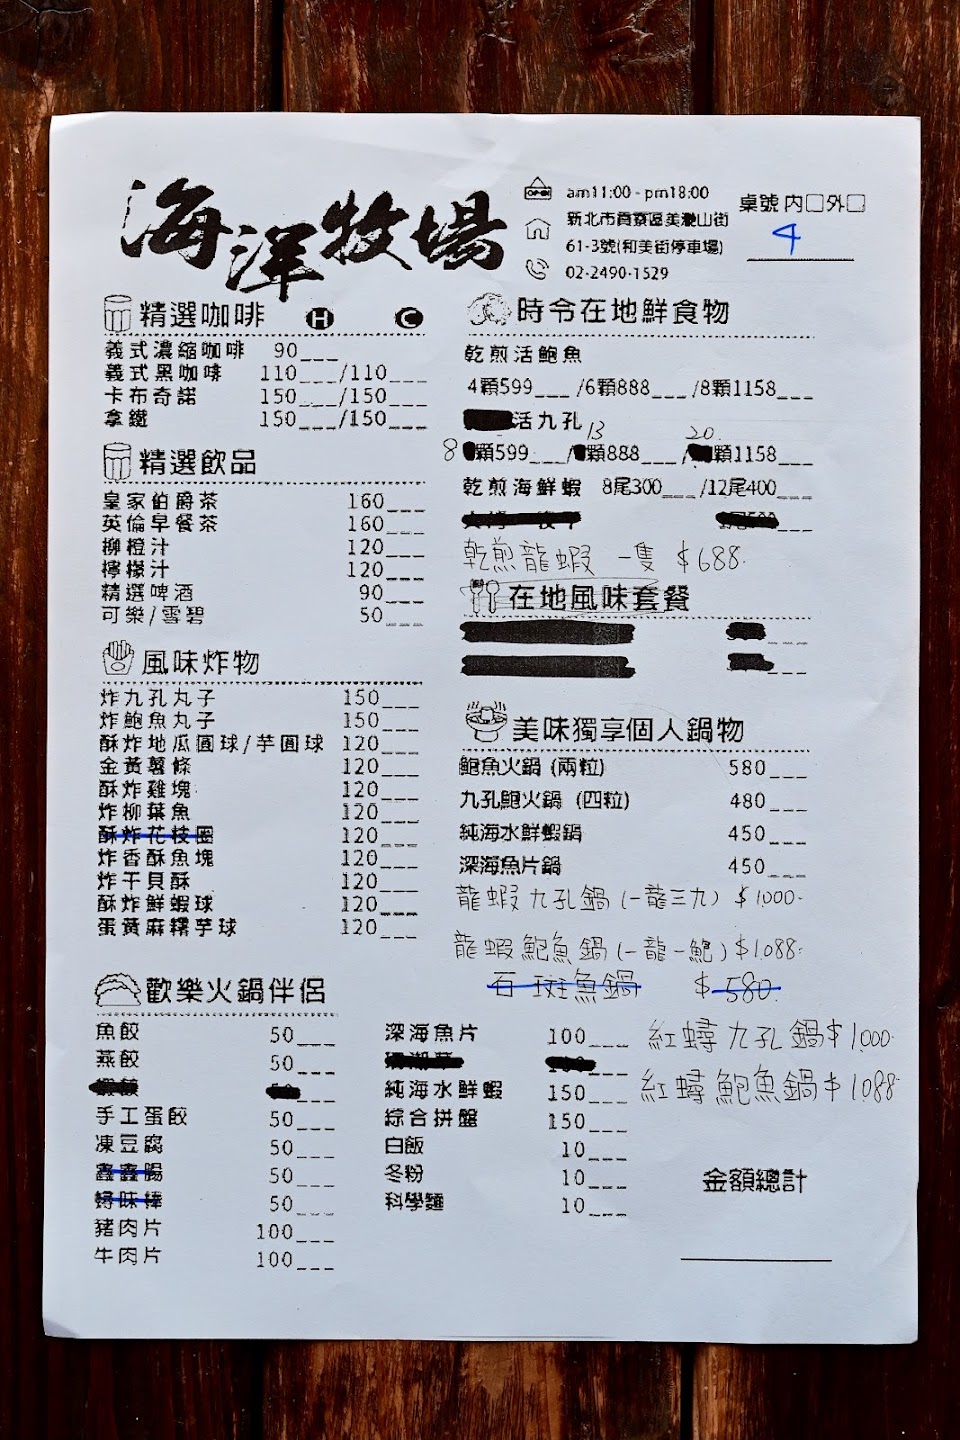 海洋牧場
am11:00 - pm18:00
新北市貢寮區美灩山街
61-3號(和美街停車場)
02-2490-1529
桌號 內□外□
4
精選咖啡 H C
義式濃縮咖啡 90___
義式黑咖啡 110___/110___
卡布奇諾 150___/150___
拿鐵 150___/150___
精選飲品
皇家伯爵茶 160___
英倫早餐茶 160___
柳橙汁 120___
檸檬汁 120___
精選啤酒 90___
可樂/雪碧 50___
風味炸物
炸九孔丸子 150___
炸鮑魚丸子 150___
酥炸地瓜圓球/芋圓球 120___
金黃薯條 120___
酥炸雞塊 120___
炸柳葉魚 120___
酥炸花枝圈 120___
炸香酥魚塊 120___
炸干貝酥 120___
酥炸鮮蝦球 120___
蛋黃麻糬芋球 120___
歡樂火鍋伴侶
魚餃 50___
燕餃 50___
手工蛋餃 50___
凍豆腐 50___
鑫鑫腸 50___
蟳味棒 50___
豬肉片 100___
牛肉片 100___
深海魚片 100___
純海水鮮蝦 150___
綜合拼盤 150___
白飯 10___
冬粉 10___
科學麵 10___
時令在地鮮食物
乾煎活鮑魚
4顆599___/6顆888___/8顆1158___
活九孔
8顆599___/13顆888___/20顆1158___
乾煎海鮮蝦 8尾300___/12尾400___
乾煎龍蝦 一隻 $688.
在地風味套餐
美味獨享個人鍋物
鮑魚火鍋 (兩粒) 580___
九孔鮑火鍋 (四粒) 480___
純海水鮮蝦鍋 450___
深海魚片鍋 450___
龍蝦九孔鍋(一龍三九) $1000.
龍蝦鮑魚鍋(一龍一鮑) $1088.
石斑魚鍋 $580.
紅蟳九孔鍋$1000.
紅蟳鮑魚鍋$1088.
金額總計